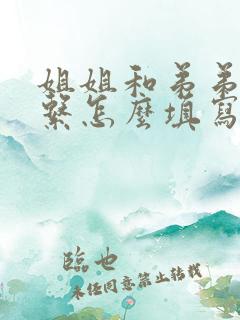 姐姐和弟弟
繫怎麼填寫
臨也
未任同意禁止轉載